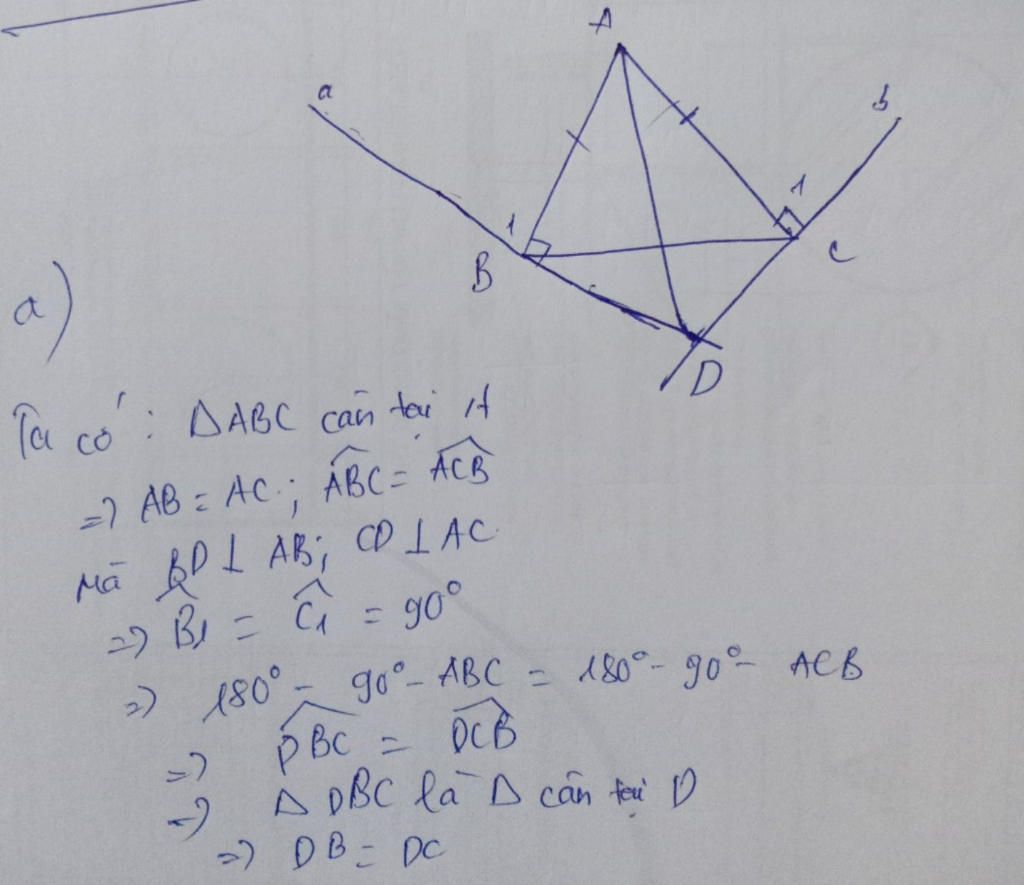 A
a
b
1
1
B
C
D
a)
Ta có: ΔABC cân tại A
=> AB = AC; \widehat{ABC} = \widehat{ACB}
Mà BD ⊥ AB; CD ⊥ AC
=> \widehat{B_1} = \widehat{C_1} = 90°
=> 180° - 90° - ABC = 180° - 90° - ACB
=> \widehat{DBC} = \widehat{DCB}
=> Δ DBC là Δ cân tại D
=> DB = DC